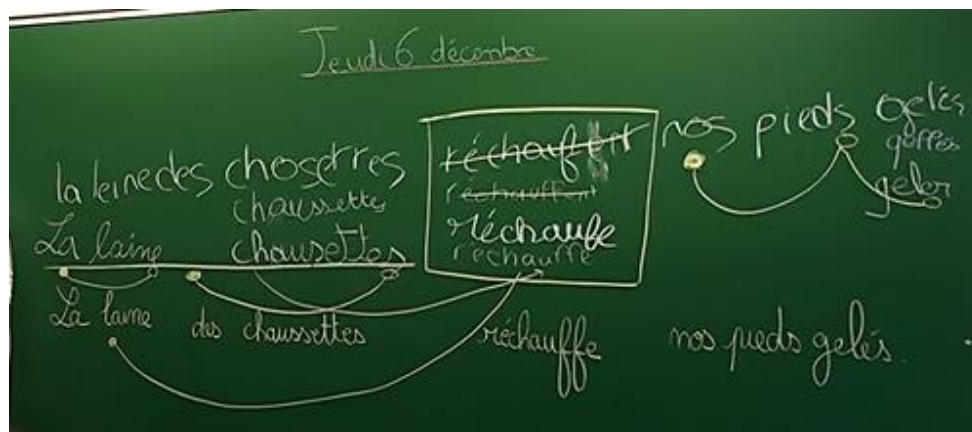 Jeudi 6 décembre
la leine des chosetres réchauffent nos pieds gelés
chaussettes réchauffent gellés
La laine chausettes réchaufe geler
réchauffe
La laine des chaussettes réchauffe nos pieds gelés.